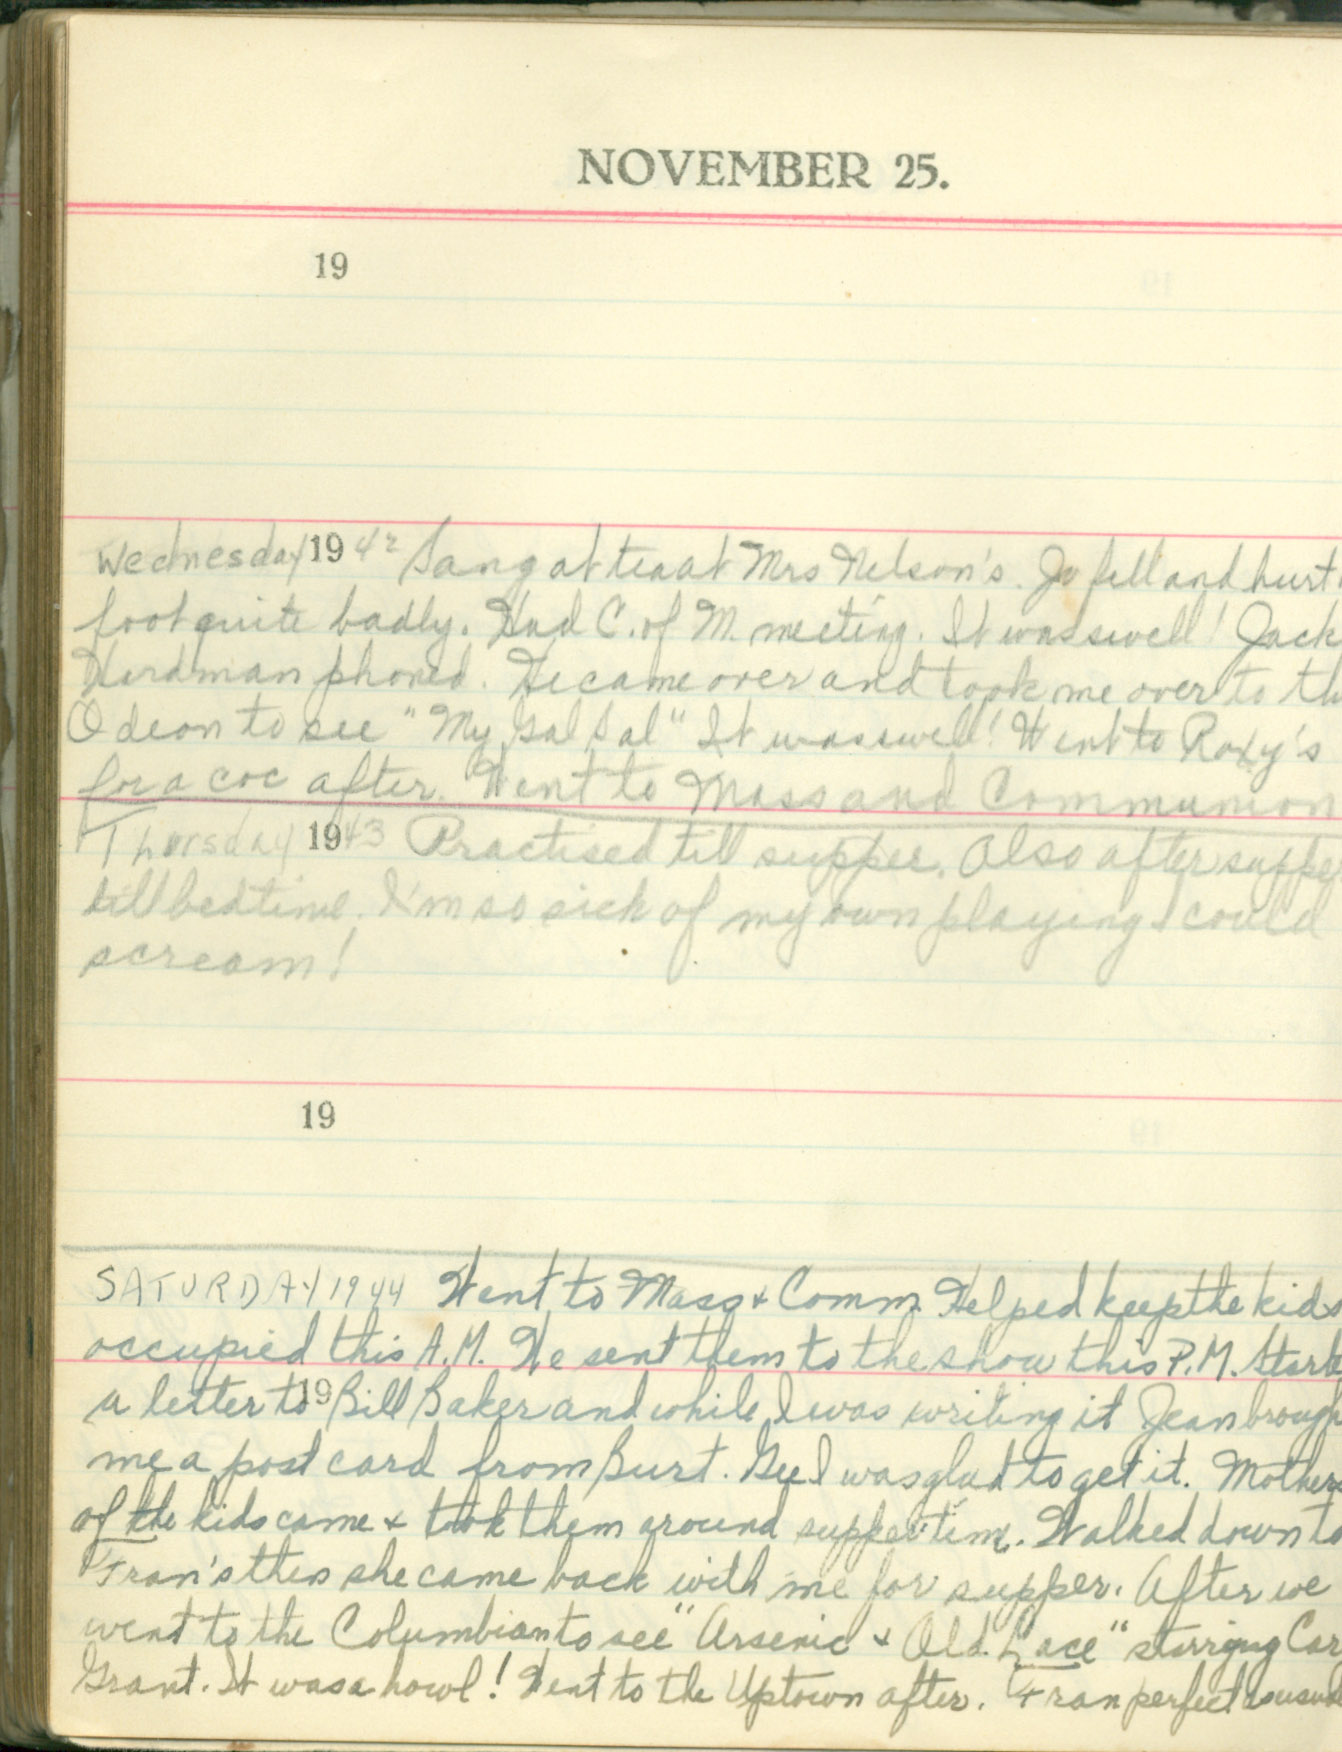 NOVEMBER 25.
19
Wednesday 1942 Sang at tea at Mrs Nelson's. Jo fell and hurt
foot quite badly. Had C. of M. meeting. It was swell! Jack
Hardman phoned. He came over and took me over to th
Odeon to see "My Gal Sal" It was swell! Went to Roxy's
for a coc after. Went to Mass and Communion
Thursday 1943 Practised till supper. Also after suppe
till bedtime. I'm so sick of my own playing I could
scream!
19
SATURDAY 1944 Went to Mass & Comm. Helped keep the kids
occupied this A.M. We sent them to the show this P.M. Starte
a letter to 19 Bill Baker and while I was writing it Jean brough
me a post card from Burt. Gee I was glad to get it. Mothers
of the kids came & took them around suppertime. Walked down to
Fran's then she came back with me for supper. After we
went to the Columbian to see "Arsenic & Old Lace" starring Cary
Grant. It was a howl! Went to the Uptown after. Fran perfect as usual